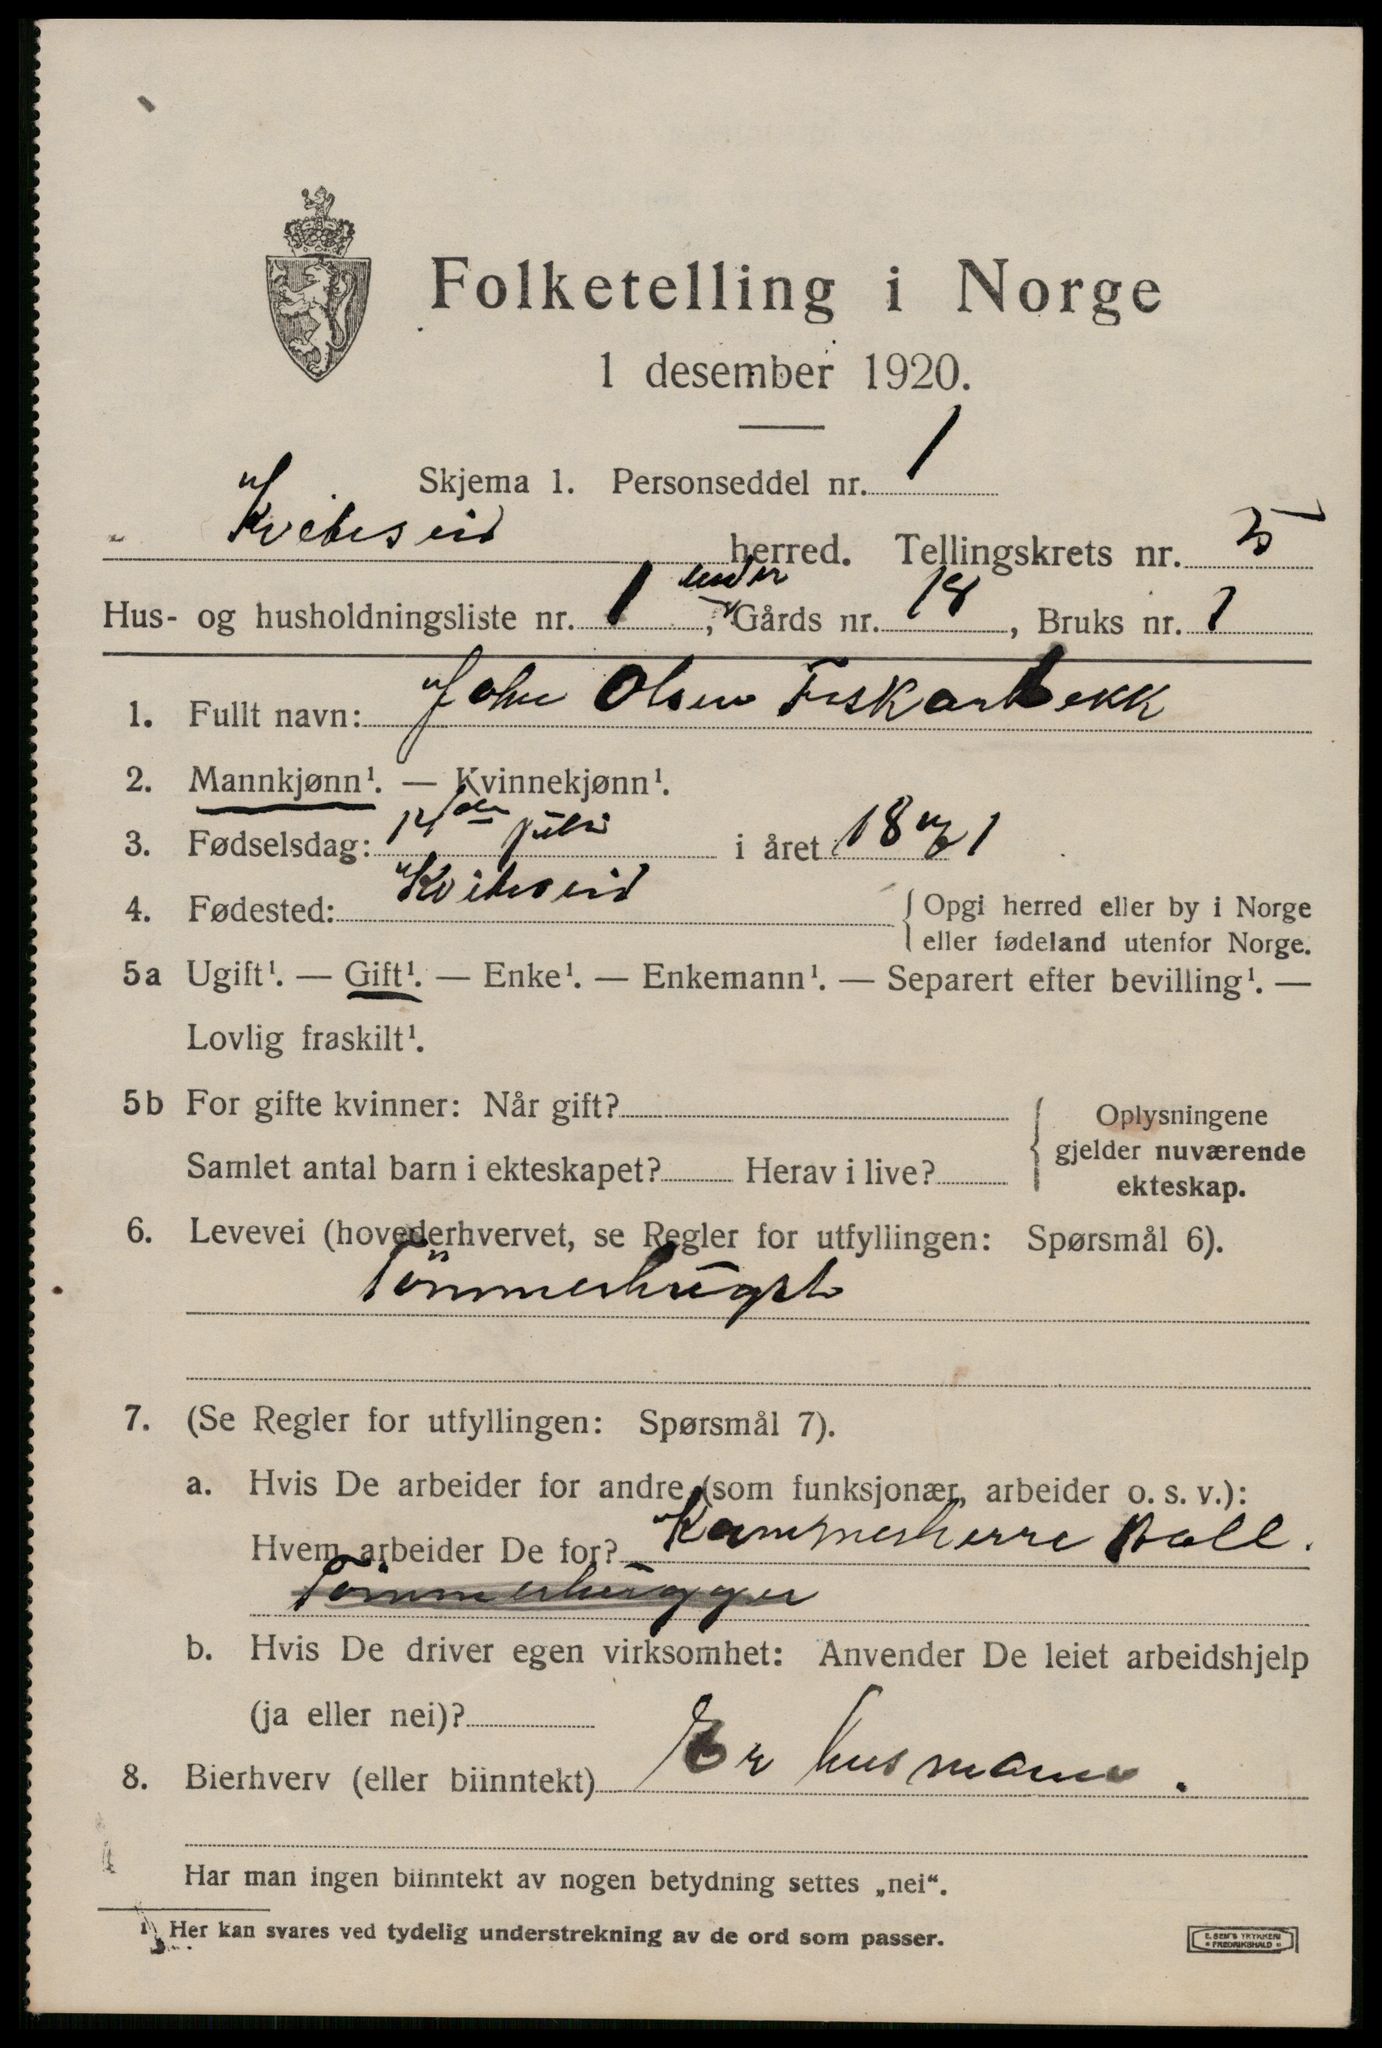 Folketelling i Norge
1 desember 1920.
Skjema 1. Personseddel nr. 1
Kviteseid herred. Tellingskrets nr. 5
Hus- og husholdningsliste nr. 1, under Gårds nr. 18, Bruks nr. 1
1. Fullt navn: John Olsen Fiskarbekk
2. Mannkjønn¹. — Kvinnekjønn¹.
3. Fødselsdag: 14den juli i året 1871
4. Fødested: Kviteseid { Opgi herred eller by i Norge
eller fødeland utenfor Norge.
5a Ugift¹. — Gift¹. — Enke¹. — Enkemann¹. — Separert efter bevilling¹. —
Lovlig fraskilt¹.
5b For gifte kvinner: Når gift? { Oplysningene
gjelder nuværende
Samlet antal barn i ekteskapet? Herav i live?
ekteskap.
6. Levevei (hovederhvervet, se Regler for utfyllingen: Spørsmål 6).
Tømmerhugst
7. (Se Regler for utfyllingen: Spørsmål 7).
a. Hvis De arbeider for andre (som funksjonær, arbeider o. s. v.):
Hvem arbeider De for? Kammerherre
Tømmerhugger
b. Hvis De driver egen virksomhet: Anvender De leiet arbeidshjelp
(ja eller nei)?
8. Bierhverv (eller biinntekt) Er husmann.
Har man ingen biinntekt av nogen betydning settes „nei“.
¹) Her kan svares ved tydelig understrekning av de ord som passer.
E. SEM'S TRYKKERI
* FREDRIKSHALD *